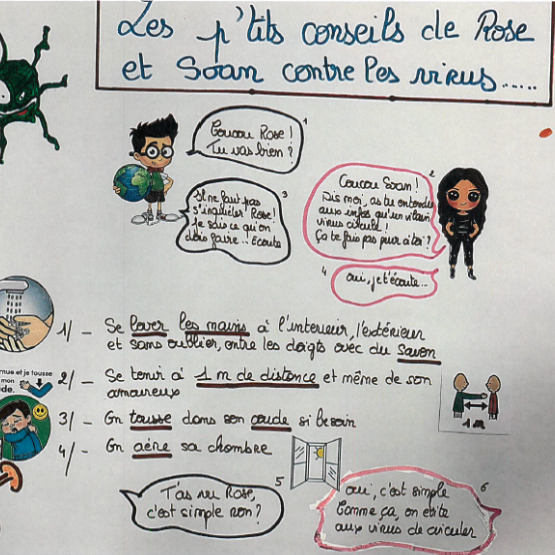 Les p'tits conseils de Rose
et Soan contre les virus.....
1
Coucou Rose !
Tu vas bien ?
2
Coucou Soan !
Dis moi, as tu entendu
aux infos qu'un vilain
virus circule !
Ça te fais pas peur à toi ?
3
Il ne faut pas
s'inquiéter Rose !
Je sais ce qu'on
dois faire... Ecoute
4
oui, je t'écoute...
1/ - Se laver les mains à l'interieur, l'extérieur
et sans oublier, entre les doigts avec du savon
nue et je tousse
mon
de.
2/ - Se tenir à 1 m de distance et même de son
amoureux
1 m
3/ - On tousse dans son coude si besoin
4/ - On aère sa chambre
5
T'as vu Rose,
c'est simple non ?
6
oui, c'est simple
Comme ça, on evite
aux virus de circuler